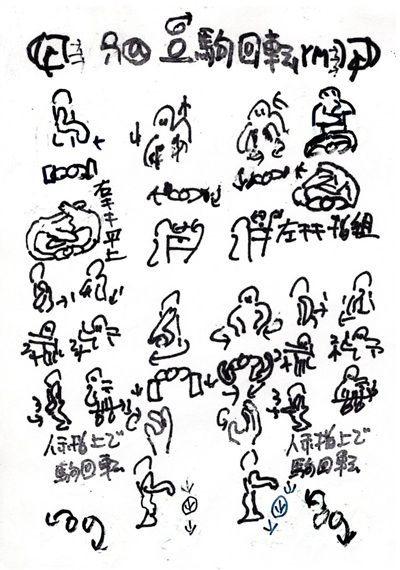 豆駒回転
右手平上
左手指組
人示指上で
駒回転
人示指上で
駒回転